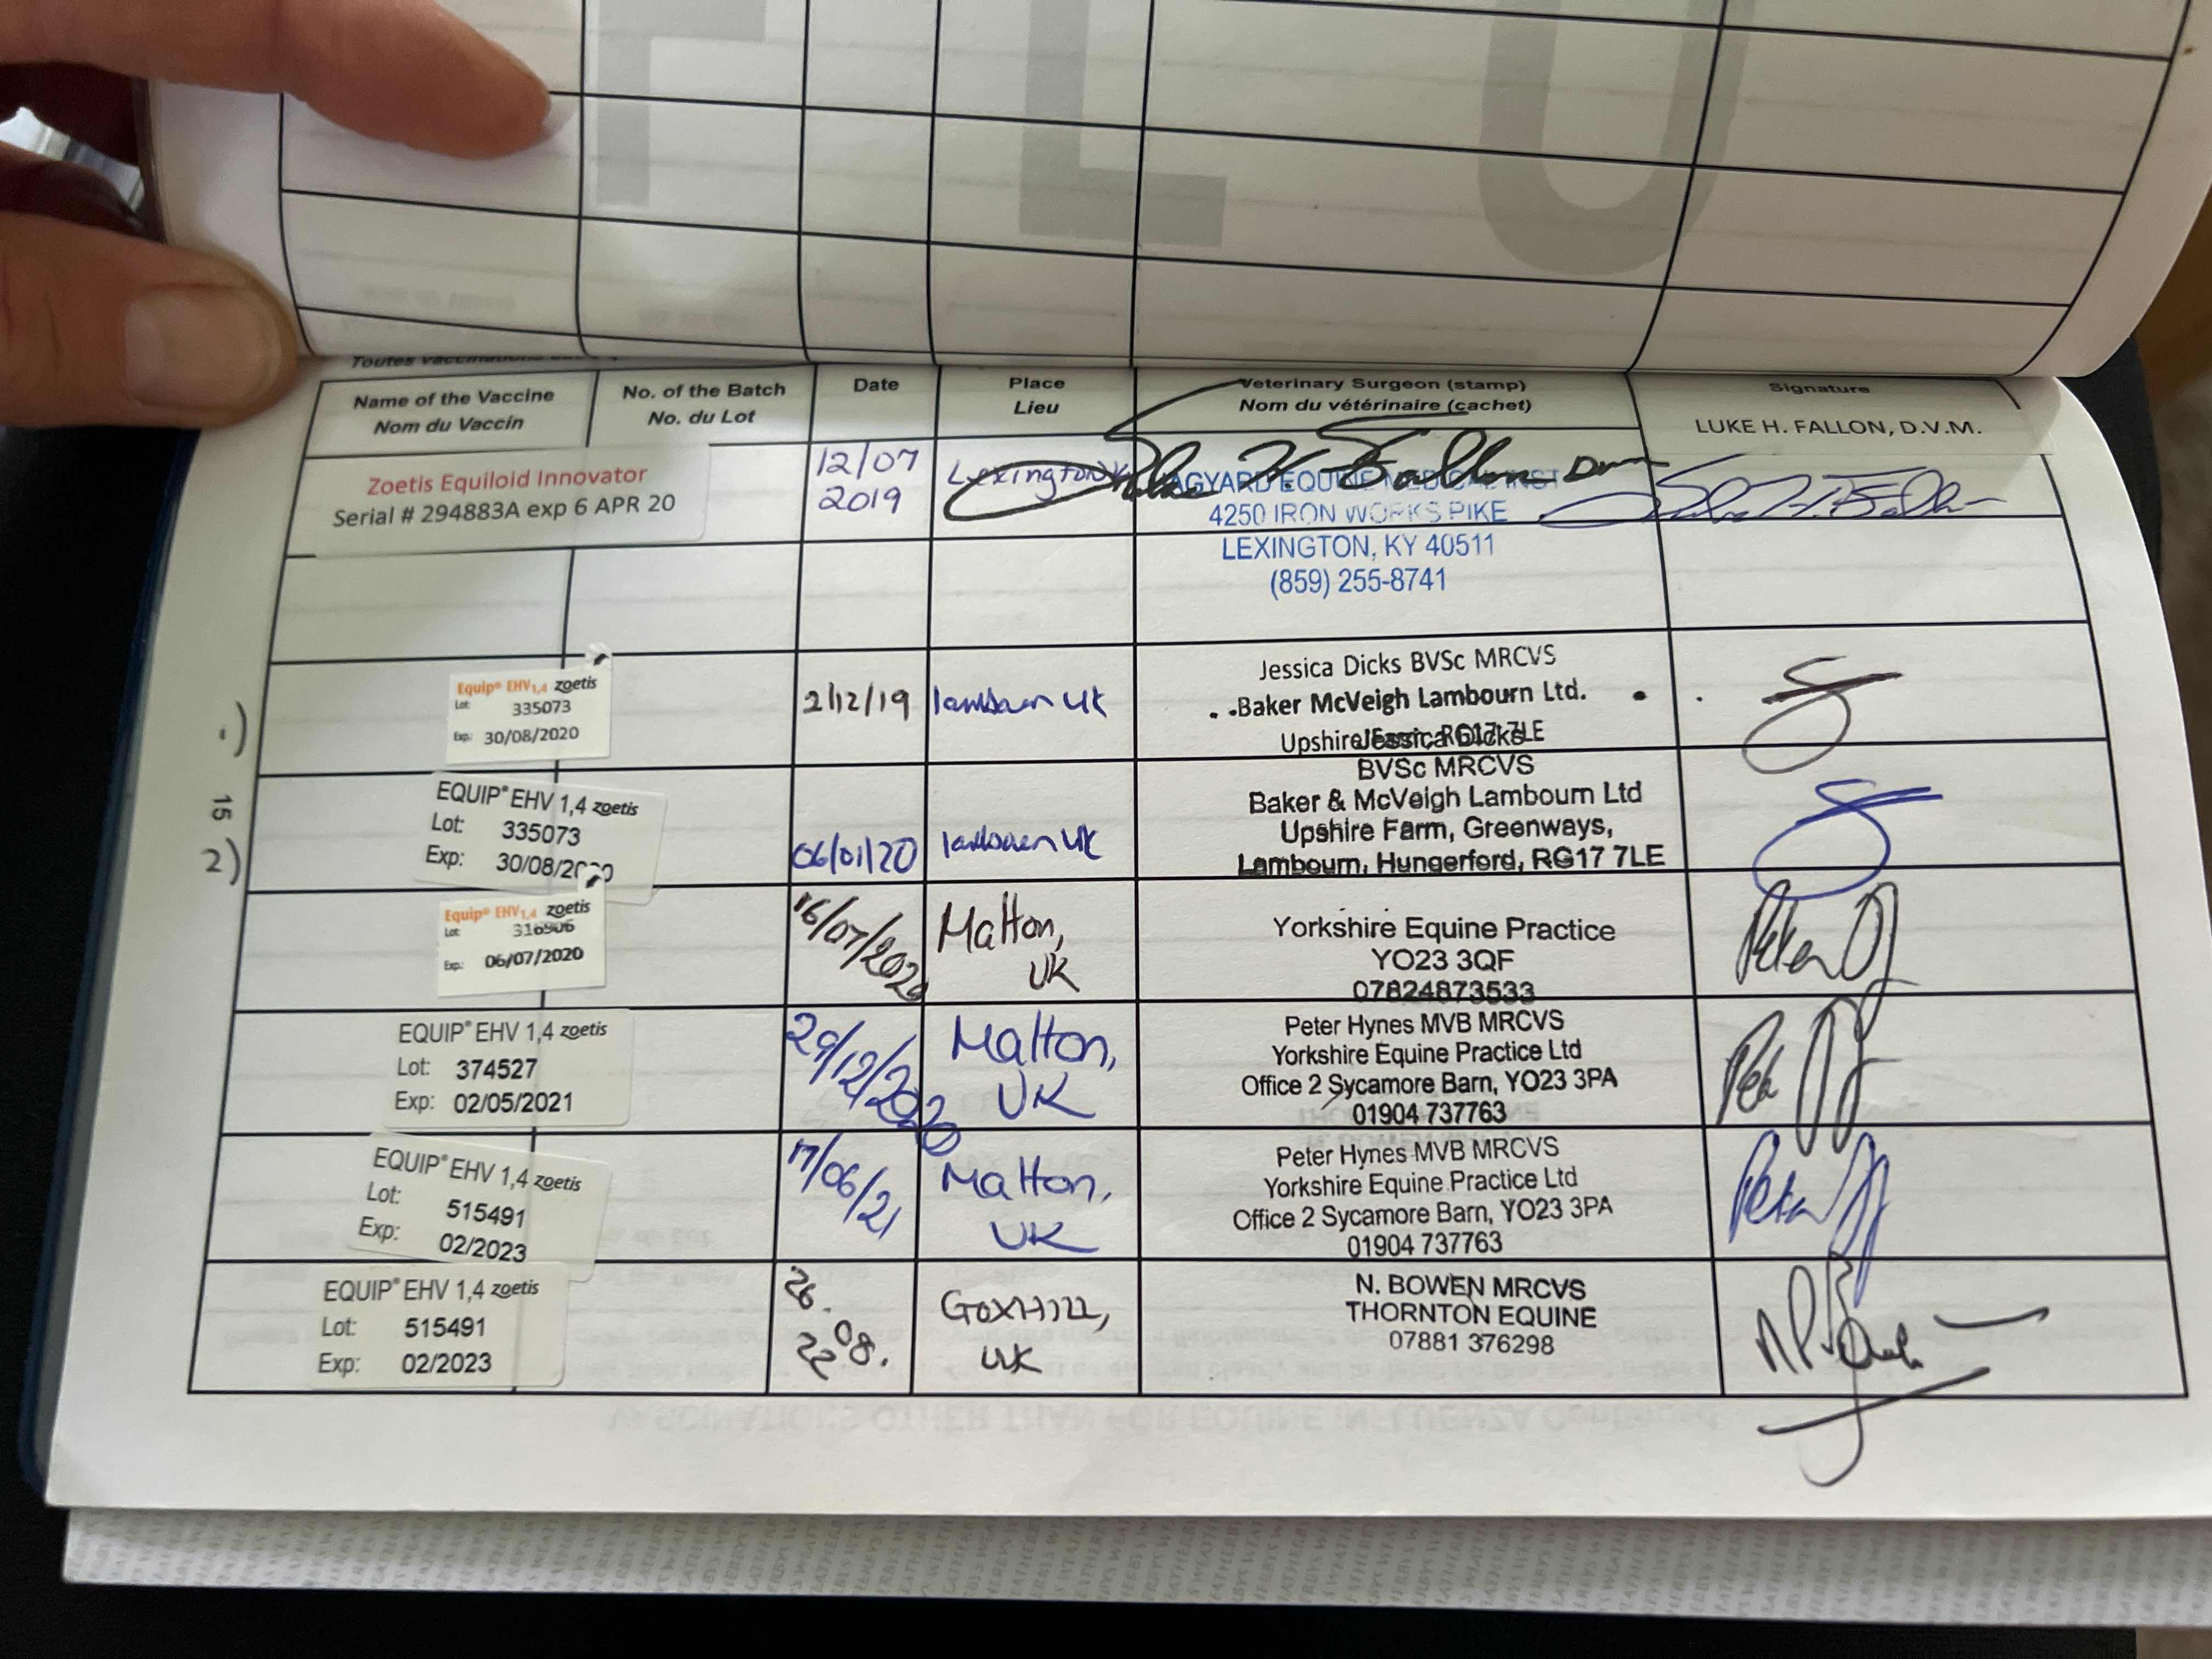 FLU
Toutes
Name of the Vaccine
Nom du Vaccin
No. of the Batch
No. du Lot
Date
Place
Lieu
Veterinary Surgeon (stamp)
Nom du vétérinaire (cachet)
Signature
LUKE H. FALLON, D.V.M.
Zoetis Equiloid Innovator
Serial # 294883A exp 6 APR 20
12/07
2019
Lexington
EQUINE MEDICAL INST
4250 IRON WORKS PIKE
LEXINGTON, KY 40511
(859) 255-8741
1)
Equip® EHV1,4 zoetis
Lot: 335073
Exp: 30/08/2020
2/12/19
lambourn UK
Jessica Dicks BVSc MRCVS
Baker McVeigh Lambourn Ltd.
Upshire Farm, RG17 7LE
15
2)
EQUIP® EHV 1,4 zoetis
Lot: 335073
Exp: 30/08/2020
06/01/20
lambourn UK
Jessica Dicks
BVSc MRCVS
Baker & McVeigh Lambourn Ltd
Upshire Farm, Greenways,
Lambourn, Hungerford, RG17 7LE
Equip® EHV1,4 zoetis
Lot: 316906
Exp: 06/07/2020
16/07/2020
Malton,
UK
Yorkshire Equine Practice
YO23 3QF
07824873533
EQUIP® EHV 1,4 zoetis
Lot: 374527
Exp: 02/05/2021
29/12/2020
Malton,
UK
Peter Hynes MVB MRCVS
Yorkshire Equine Practice Ltd
Office 2 Sycamore Barn, YO23 3PA
01904 737763
EQUIP® EHV 1,4 zoetis
Lot: 515491
Exp: 02/2023
17/06/21
Malton,
UK
Peter Hynes MVB MRCVS
Yorkshire Equine Practice Ltd
Office 2 Sycamore Barn, YO23 3PA
01904 737763
EQUIP® EHV 1,4 zoetis
Lot: 515491
Exp: 02/2023
26.
08.
22
GOXHILL,
UK
N. BOWEN MRCVS
THORNTON EQUINE
07881 376298
VACCINATIONS OTHER THAN FOR EQUINE INFLUENZA Continued